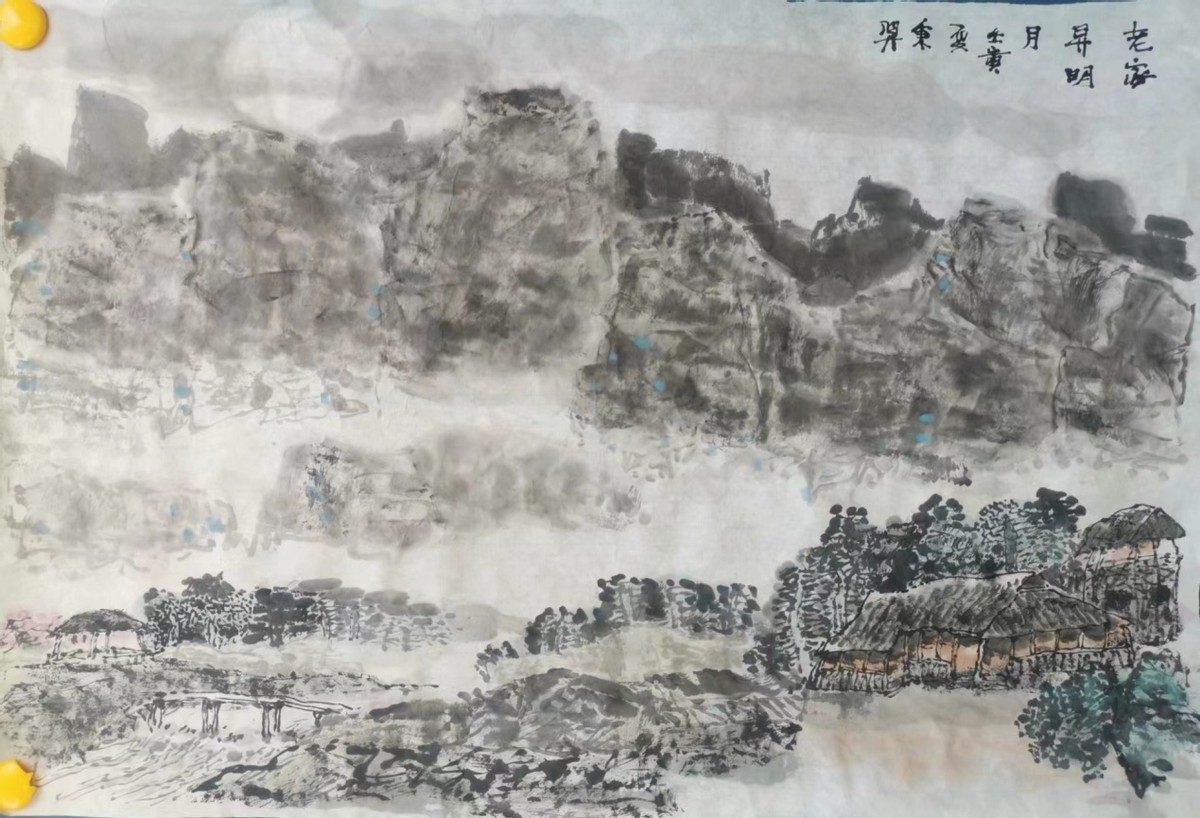 老家
昇明
月
壬寅
夏
秉